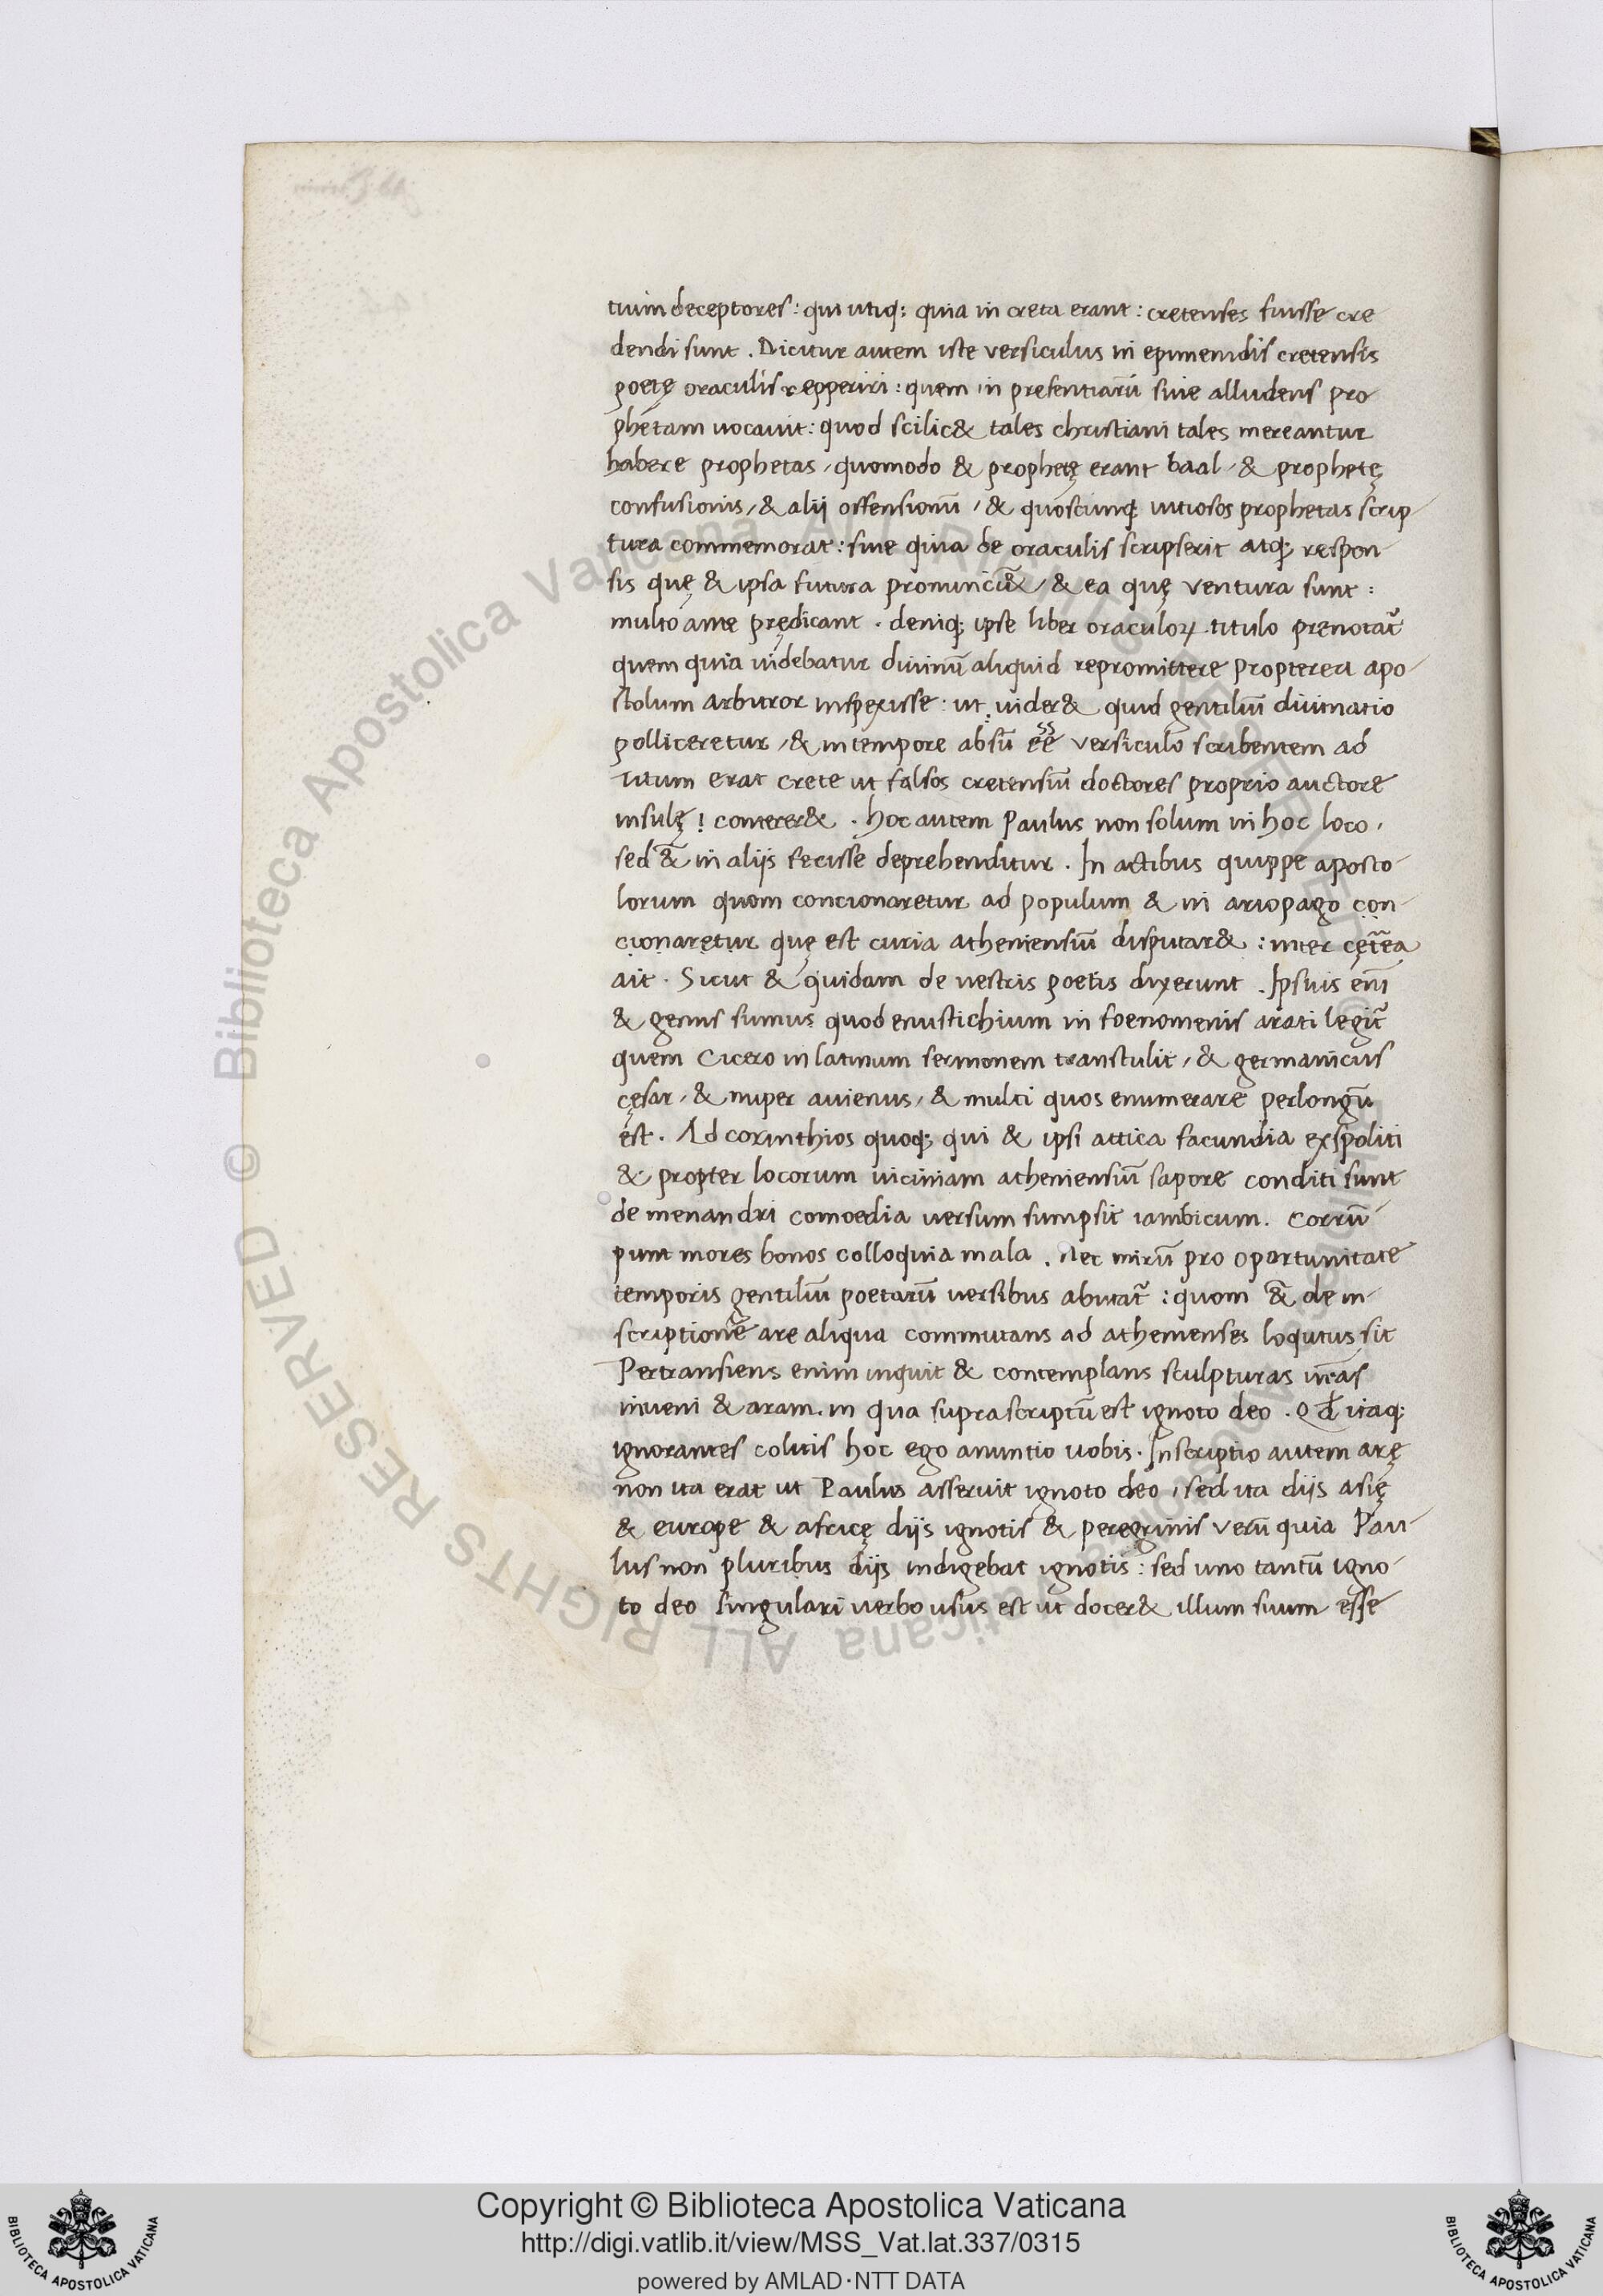 tium deceptores: qui utiq; quia in creta erant: cretenses fuisse cre
dendi sunt. Dicitur autem iste versiculus in epimenidis cretensis
poetę oraculis repperiri: quem in presentiarū sive alludens pro
phetam uocauit: quod scilic& tales christiani tales mereantur
habere prophetas, quomodo & prophetę erant baal, & prophetę
confusionis, & alij offensionū, & quoscunq; uitiosos prophetas scrip-
tura commemorat: siue quia de oraculis scripserit atq; respon-
sis quę & ipsa futura pronunciā&, & ea quę ventura sunt:
multo ante prędicant. deniq; ipse liber oraculoꝝ titulo prenotat᷑
quem quia uidebatur diuinū aliquid repromittere propterea apo-
stolum arbitror inspexisse: ut uider& quid gentiliū diuinatio
polliceretur, & in tempore absū eē versiculo scribentem ad
Titum erat crete ut falsos cretensiū doctores proprio auctore
insulę! conterer&. hoc autem Paulus non solum in hoc loco,
sed &̄ in alijs fecisse deprehenditur. In actibus quippe aposto-
lorum quom concionaretur ad populum & in ariopago con-
cionaretur quę est curia atheniensiū disputar&: inter cęt̄ea
ait. Sicut & quidam de uestris poetis dixerunt. Ipsius enī
& genus sumus quod emistichium in foenomenis arati legit᷑
quem Cicero in latinum sermonem transtulit, & germanicus
cęsar, & nuper auienus, & multi quos enumerare perlongū
est. Ad corinthios quoq; qui & ipsi attica facundia expoliti
& propter locorum uiciniam atheniensiū sapore conditi sunt
de menandri comoedia uersum sumpsit iambicum. Corrū-
punt mores bonos colloquia mala. Nec mirū pro oportunitate
temporis gentiliū poetarū uersibus abutat᷑: quom &̄ de in-
scriptione are aliqua commutans ad athenienses loqutus sit
Pertransiens enim inquit & contemplans sculpturas ūras
inueni & aram. in qua suprascriptū est ignoto deo. Qđ itaq;
ignorantes colitis hoc ego anuntio uobis. Inscriptio autem arę
non ita erat ut Paulus asseruit ignoto deo, sed ita dijs asię
& europe & africę dijs ignotis & peregrinis verū quia Pau-
lus non pluribus dijs indigebat ignotis: sed uno tantū igno-
to deo singulari uerbo usus est ut docer& illum suum esse
Copyright © Biblioteca Apostolica Vaticana
http://digi.vatlib.it/view/MSS_Vat.lat.337/0315
powered by AMLAD·NTT DATA
BIBLIOTECA APOSTOLICA VATICANA
BIBLIOTECA APOSTOLICA VATICANA
© Biblioteca Apostolica Vaticana ALL RIGHTS RESERVED
© Biblioteca Apostolica Vaticana ALL RIGHTS RESERVED